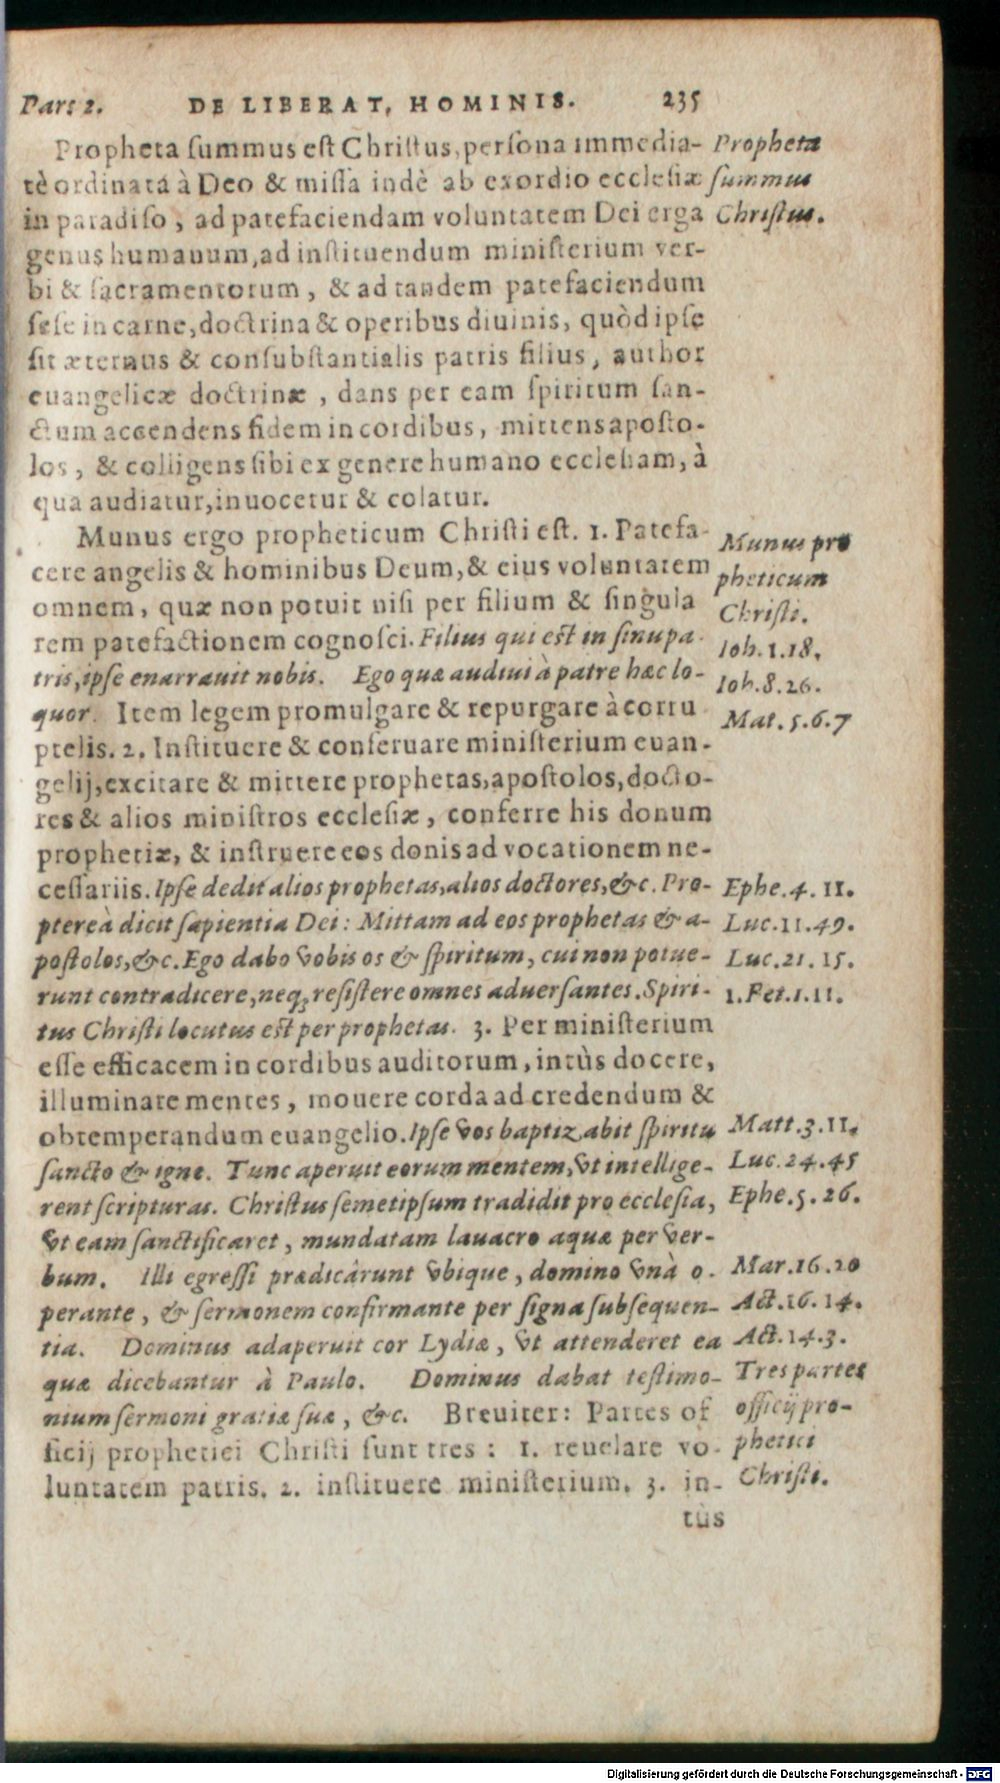 Pars 2. DE LIBERAT, HOMINIS. 235
Propheta ſummus est Chriſtus, perſona immedia-
tè ordinata à Deo & miſſa indè ab exordio eccleſiæ
in paradiſo, ad patefaciendam voluntatem Dei erga
genus humanum, ad inſtituendum miniſterium ver-
bi & ſacramentorum, & ad tandem patefaciendum
ſeſe in carne, doctrina & operibus diuinis, quòd ipſe
ſit æternus & conſubſtantialis patris filius, author
euangelicæ doctrinæ, dans per eam ſpiritum ſan-
ctum accendens fidem in cordibus, mittens apoſto-
los, & colligens ſibi ex genere humano eccleſiam, à
qua audiatur, inuocetur & colatur.
Propheta
ſummus
Chriſtus.
Munus ergo propheticum Chriſti eſt. 1. Patefa-
cere angelis & hominibus Deum, & eius voluntatem
omnem, quæ non potuit niſi per filium & ſingula
rem patefactionem cognoſci. Filius qui eſt in ſinu pa-
tris, ipſe enarrauit nobis. Ego quæ audiui à patre hæc lo-
quor. Item legem promulgare & repurgare à corru
ptelis. 2. Inſtituere & conſeruare miniſterium euan-
gelij, excitare & mittere prophetas, apoſtolos, docto-
res & alios miniſtros eccleſiæ, conferre his donum
prophetiæ, & inſtruere eos donis ad vocationem ne-
ceſſariis. Ipſe dedit alios prophetas, alios doctores, &c. Pro-
ptereà dicit ſapientia Dei: Mittam ad eos prophetas & a-
poſtolos, &c. Ego dabo vobis os & ſpiritum, cui non potue-
runt contradicere, neq; reſiſtere omnes aduerſantes. Spiri-
tus Chriſti locutus eſt per prophetas. 3. Per miniſterium
eſſe efficacem in cordibus auditorum, intùs docere,
illuminare mentes, mouere corda ad credendum &
obtemperandum euangelio. Ipſe vos baptizabit ſpiritu
ſancto & igne. Tunc aperuit eorum mentem, vt intellige-
rent ſcripturas. Chriſtus ſemetipſum tradidit pro eccleſia,
vt eam ſanctificaret, mundatam lauacro aquæ per ver-
bum. Illi egreſſi prædicârunt vbique, domino vnà o-
perante, & ſermonem confirmante per ſigna ſubſequen-
tia. Dominus adaperuit cor Lydiæ, vt attenderet ea
quæ dicebantur à Paulo. Dominus dabat teſtimo-
nium ſermoni gratiæ ſuæ, &c. Breuiter: Partes of
ficij prophetici Chriſti ſunt tres: 1. reuelare vo-
luntatem patris. 2. inſtituere miniſterium. 3. in-
tùs
Munus pro
pheticum
Chriſti.
Ioh. 1. 18.
Ioh. 8. 26.
Mat. 5. 6. 7
Ephe. 4. 11.
Luc. 11. 49.
Luc. 21. 15.
1. Pet. 1. 11.
Matt. 3. 11.
Luc. 24. 45
Ephe. 5. 26.
Mar. 16. 20
Act. 16. 14.
Act. 14. 3.
Tres partes
officij pro-
phetici
Chriſti.
Digitalisierung gefördert durch die Deutsche Forschungsgemeinschaft - DFG